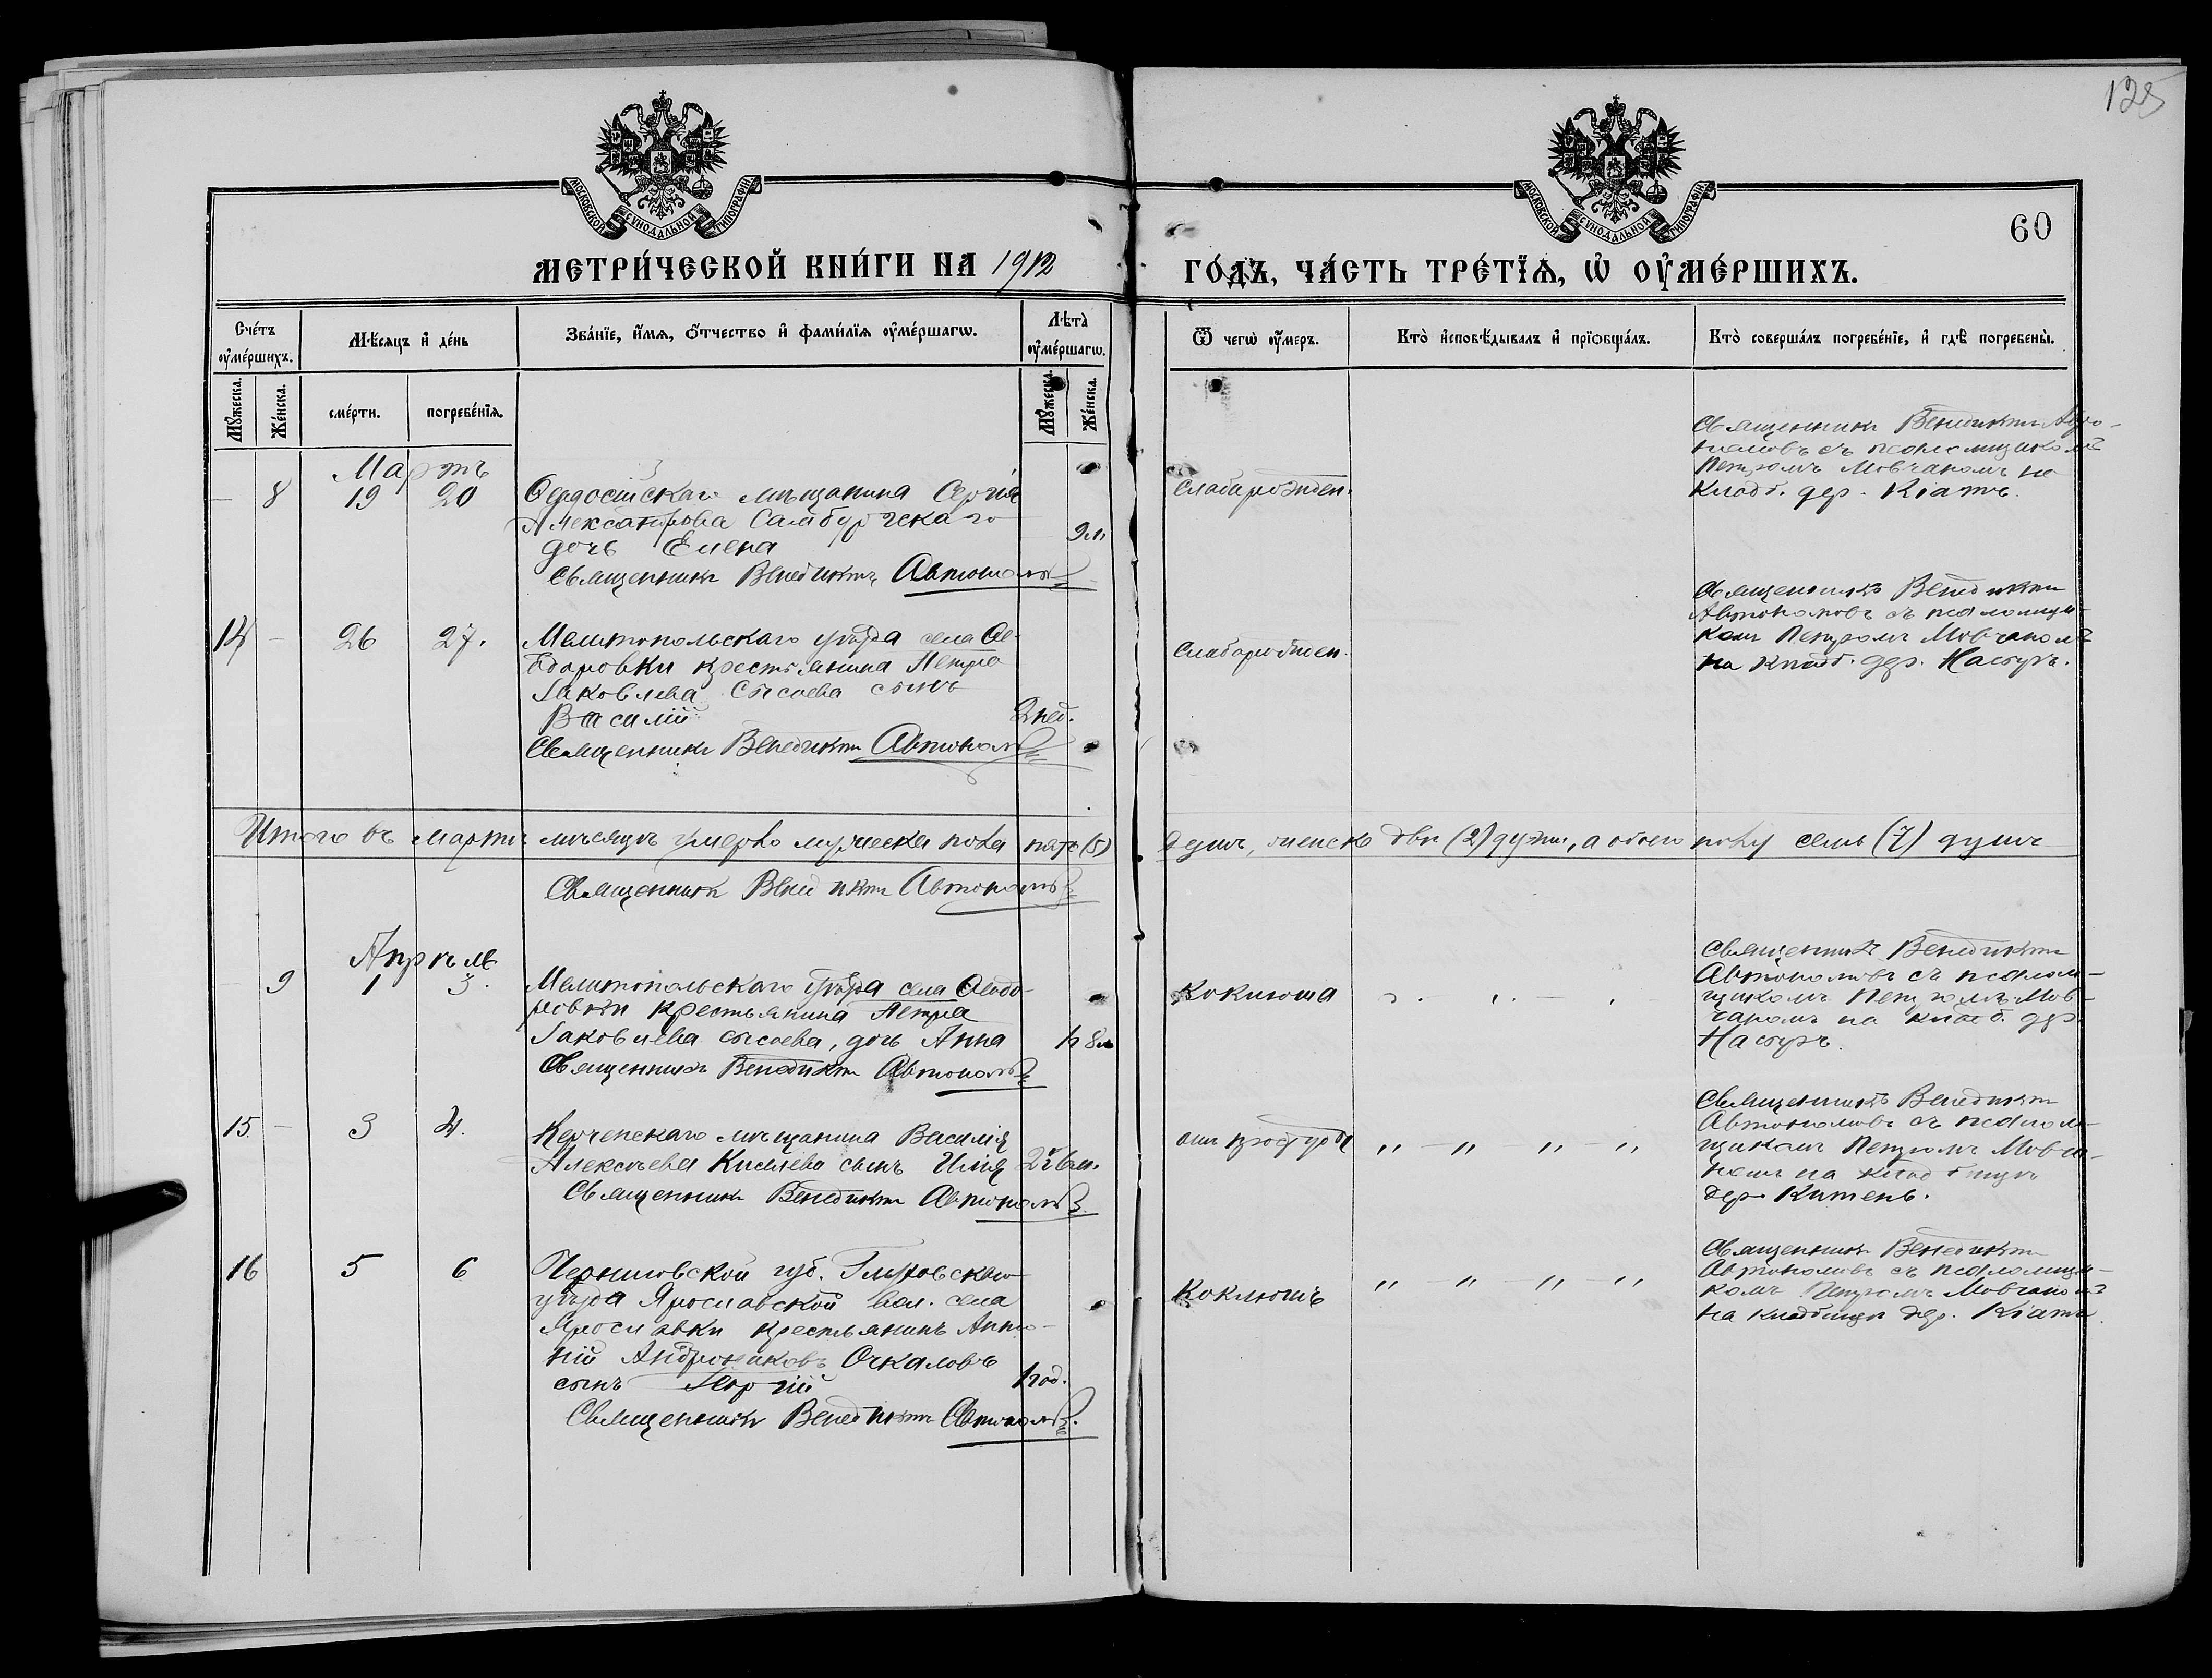 125
МОСКОВСКОЙ СѴНОДАЛЬНОЙ ТИПОГРАФІИ.
МОСКОВСКОЙ СѴНОДАЛЬНОЙ ТИПОГРАФІИ.
60
МЕТРИ́ЧЕСКОЙ КНИ́ГИ НА 1912 ГО́ДЪ, ЧА́СТЬ ТРЕ́ТЇѦ, Ѡ҆ ОУ҆МЕ́РШИХЪ.
Сче́тъ оу҆ме́ршихъ.
Мѣ́сяцъ и҆ де́нь
Зва́нїе, и҆́мѧ, ѻ҆́тчество и҆ фами́лїѧ оу҆ме́ршагѡ.
Лѣ́та оу҆ме́ршагѡ.
Ѿ чегѡ̀ оу҆́меръ.
Кто̀ и҆сповѣ́дывалъ и҆ прїѡбща́лъ.
Кто̀ соверша́лъ погребе́нїе, и҆ гдѣ̀ погребены̀.
Мꙋ́жеска.
Же́нска.
сме́рти.
погребе́нїѧ.
Мꙋ́жеска.
Же́нска.
Мартъ
— 8 19 20
Феодосійскаго мѣщанина Сергія
Александрова Самбурскаго
дочь Елена
9 м.
Священникъ Венедиктъ Автономовъ
Слаборожден.
Священникъ Венедиктъ Авто-
номовъ съ псаломщикомъ
Петромъ Мовчаномъ на
кладб. дер. Кіатъ.
14 — 26 27.
Мелитопольскаго уѣзда села Ѳе-
доровки крестьянина Петра
Іаковлева Сысоева сынъ
Василій
2 нед.
Священникъ Венедиктъ Автономовъ
Слаборожден.
Священникъ Венедиктъ
Автономовъ съ псаломщи-
комъ Петромъ Мовчаномъ
на кладб. дер.
Итого въ мартѣ мѣсяцѣ умерло мужеска пола пять (5) душъ, женск двѣ (2) души, а обоего полу семь (7) душъ
Священникъ Венедиктъ Автономовъ
Апрѣль
9 1 3.
Мелитопольскаго уѣзда села Ѳеодо-
ровки крестьянина Петра
Іаковлева Сысоева, дочь Анна
1 г 8 м
Священникъ Венедиктъ Автономовъ
Коклюша
Священникъ Венедиктъ
Автономовъ съ псалом-
щикомъ Петромъ Мов-
чаномъ на кладб. дер.
15. — 3 4.
Керченскаго мѣщанина Василія
Алексѣева Киселева сынъ Илія
2 г. 6 м.
Священникъ Венедиктъ Автономовъ
отъ простуды " — " " — "
Священникъ Венедиктъ
Автономовъ съ псалом-
щикомъ Петромъ Мовча-
номъ на кладбищѣ
дер. Китень.
16 5 6
Черниговской губ. Глуховскаго
уѣзда Ярославской вол. села
Ярославки крестьянинъ Анто-
ній Андрониковъ Очкаловъ
сынъ Георгій
1 год.
Священникъ Венедиктъ Автономовъ.
Коклюшъ " — " — " — "
Священникъ Венедиктъ
Автономовъ съ псаломщи-
комъ Петромъ Мовчаномъ
на кладбищѣ дер. Кіатъ.